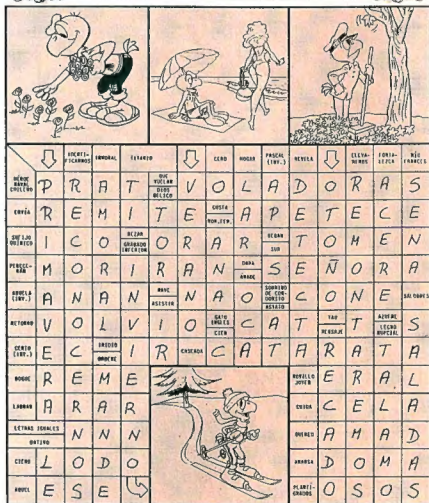 IDENTI-
FICARNOS
INMORAL
TITANIO
CERO
HOGAR
PASCAL
(INV.)
REVELA
ELEVA-
REMOS
FORTA-
LEZCA
RÍO
FRANCES
HÉROE
NAVAL
CHILENO
P R A T
QUE
VUELAN
DIOS
BÉLICO
V O L A D O R A S
ENVÍA
R E M I T E
COSTA
A P E T E C E
SUFIJO
QUÍMICO
I C O
REZAR
GRABADO
INFERIOR
O R A R
BEBAN
SUR
T O M E N
PERECE-
RÁN
M O R I R A N
DARA
ÁNADE
S E Ñ O R A
ABUELA
(INV.)
A N A N
NAVE
ASISTIR
N A O
SONRIDO
DE CON-
DORITO
ASTATO
C O N E
SALOBRES
RETORNO
V O L V I O
GATO
INGLÉS
CIEN
C A T
TAU
MENSAJE
T
AZUFRE
LECHO
NUPCIAL
S
CERTO
(INV.)
E C
INSIDIO
ORDENE
I R
CASCADA
C A T A R A T A
BOGUE
R E M E
NOVILLO
JOVEN
E R A L
LABRAR
A R A R
CUIDA
C E L A
LETRAS IGUALES
DATIVO
N N N
QUERED
A M A D
CIENO
L O D O
AMANSA
D O M A
AQUEL
E S E
PLANTÍ-
GRADOS
O S O S